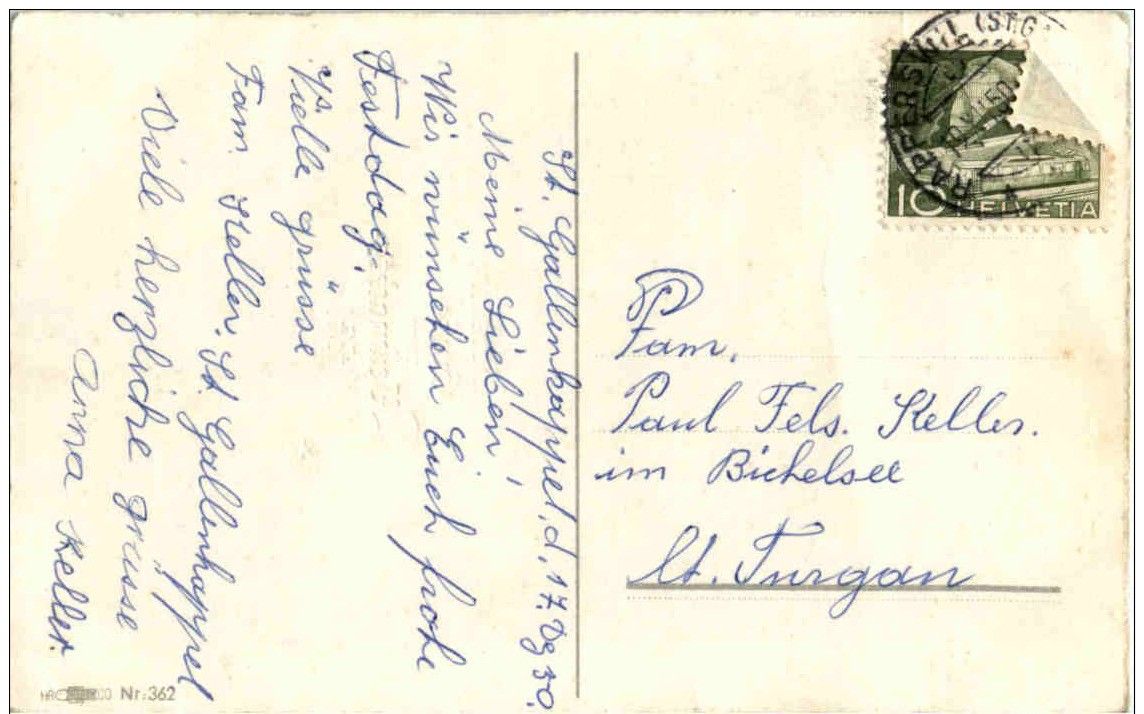 St. Gallenkappel, d. 17. Dez 50.
Meine Lieben!
Wir wünschen Euch frohe
Festdag.
Vielle grüsse
Fam. Keller. St. Gallenkappel
Viele herzliche grüsse
Anna Keller.
Nr. 362
RAPPERSWIL (ST.G
10 HELVETIA
Fam.
Paul Fels. Keller.
im Bichelsee
Ct. Turgau